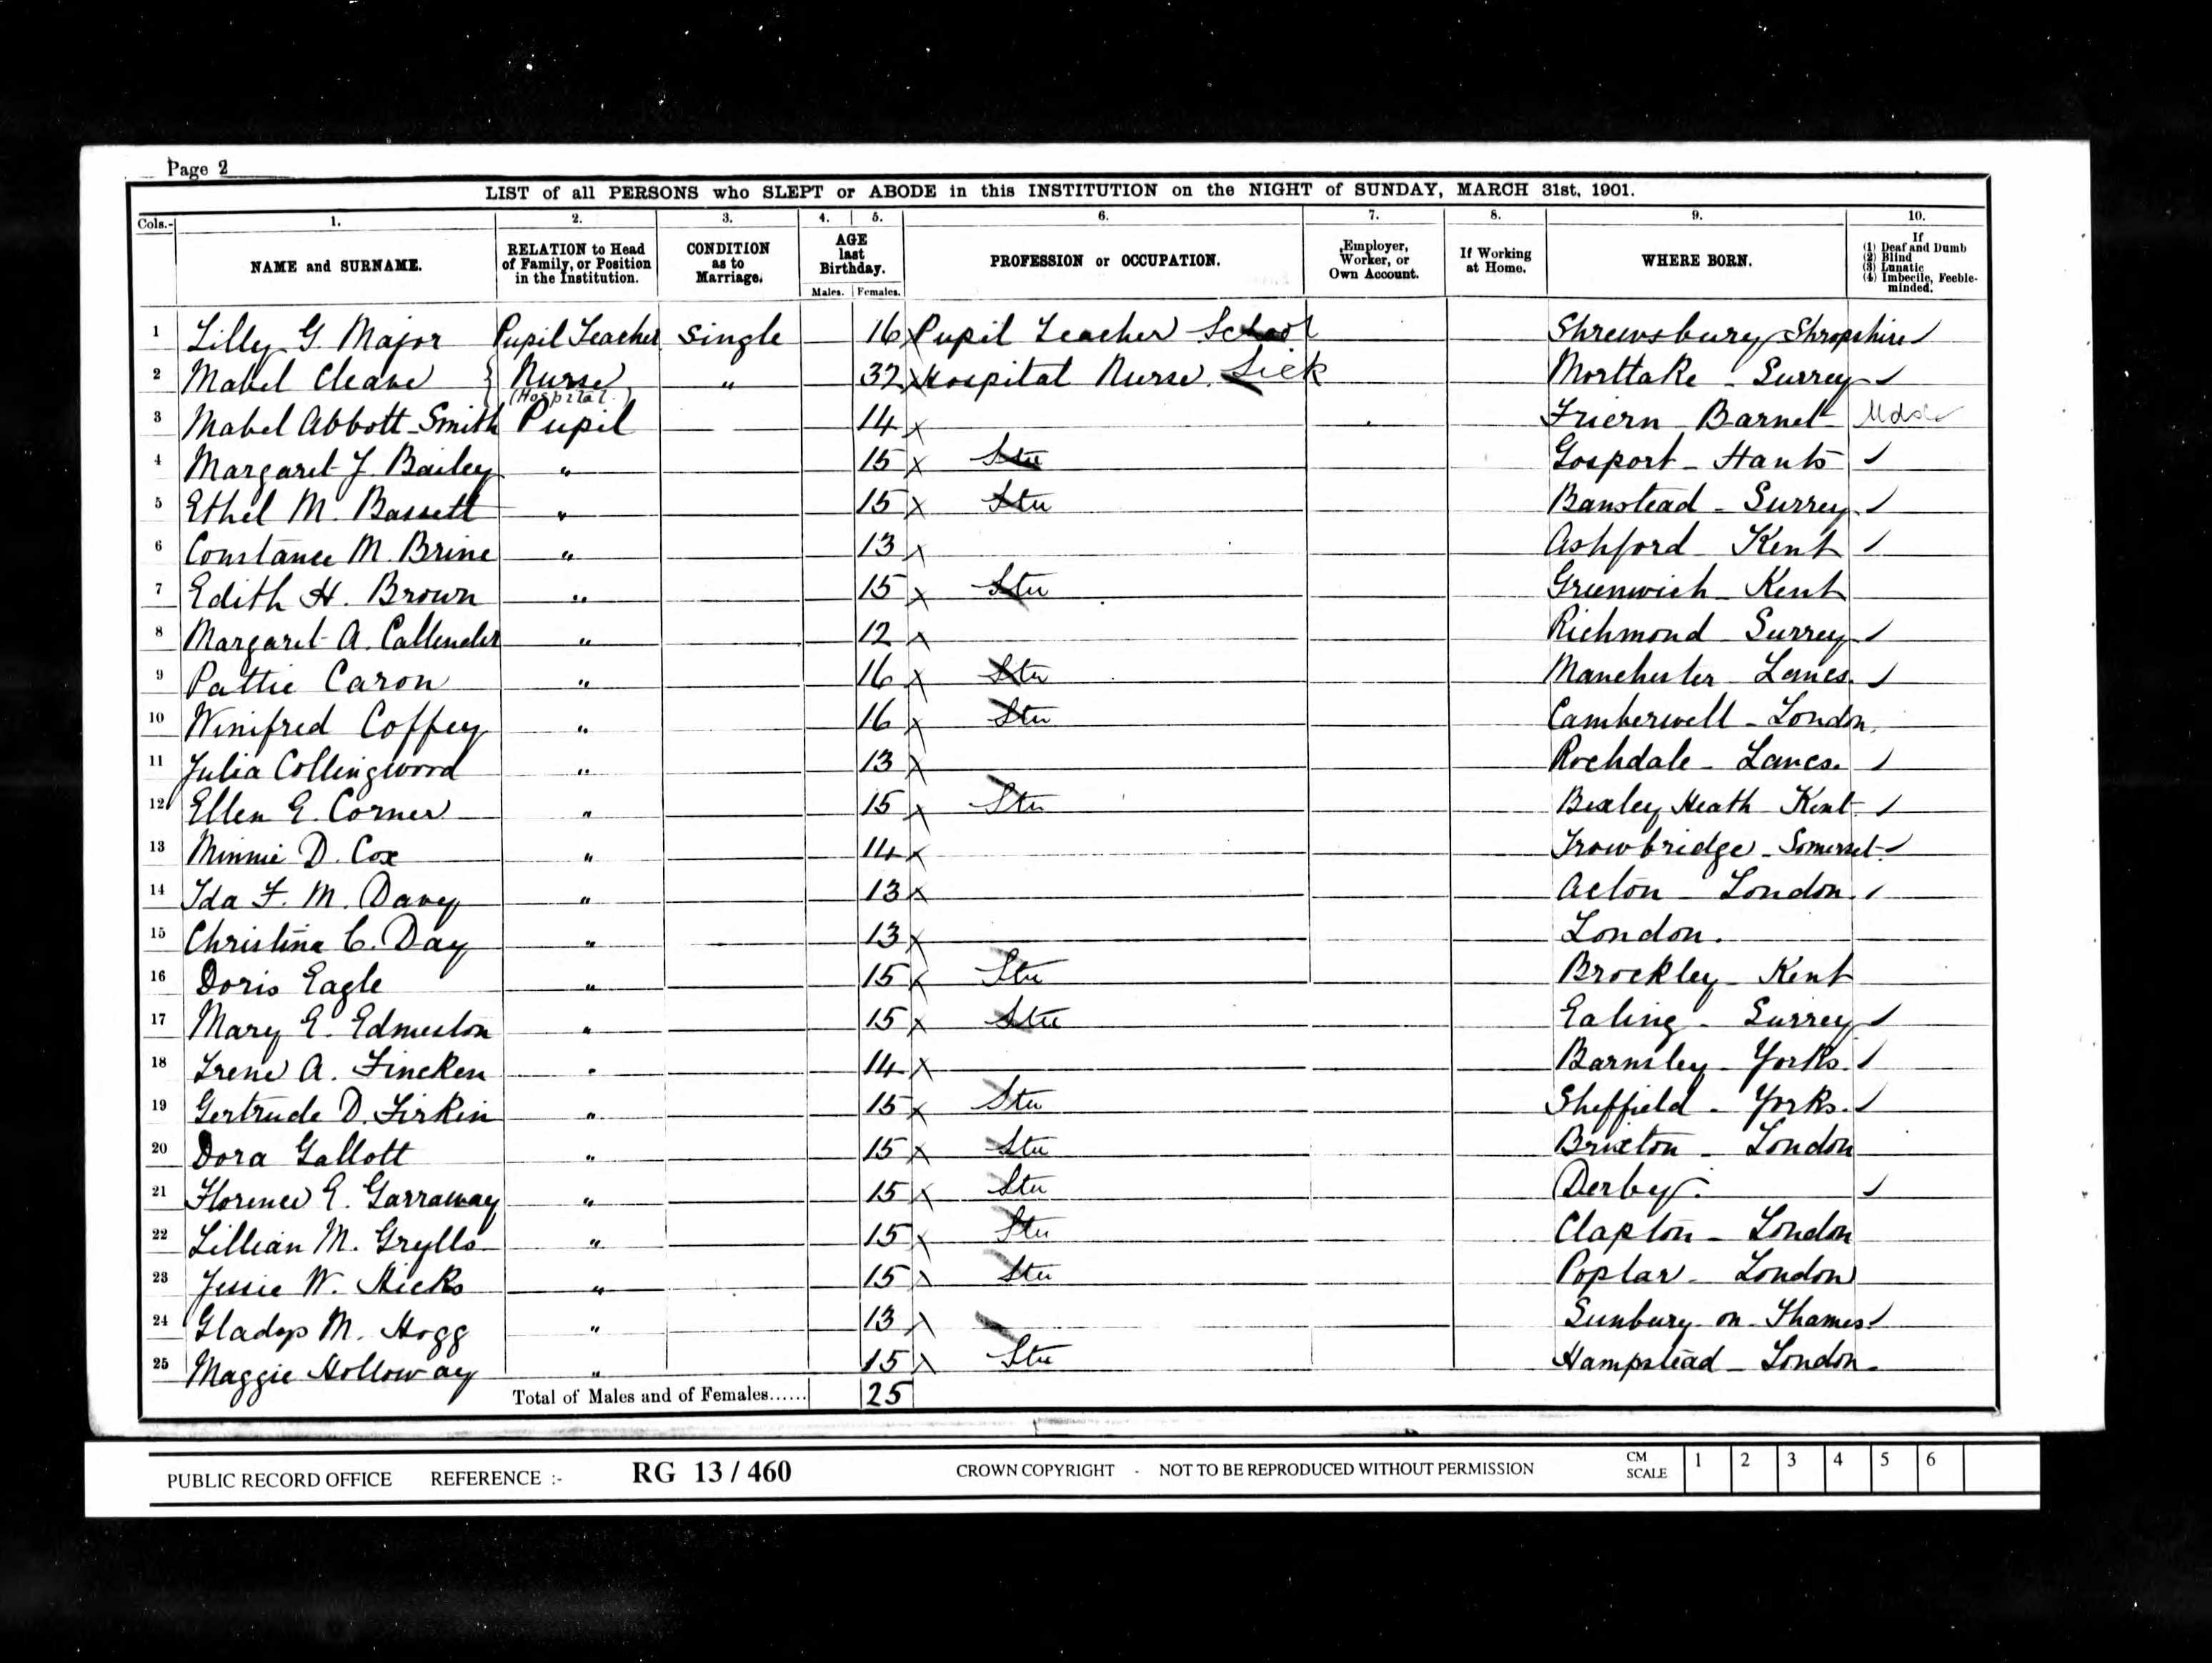 Page 2
LIST of all PERSONS who SLEPT or ABODE in this INSTITUTION on the NIGHT of SUNDAY, MARCH 31st, 1901.
Cols.- 1. 2. 3. 4. 5. 6. 7. 8. 9. 10.
NAME and SURNAME. RELATION to Head of Family, or Position in the Institution. CONDITION as to Marriage. AGE last Birthday. Males. Females. PROFESSION or OCCUPATION. Employer, Worker, or Own Account. If Working at Home. WHERE BORN. If (1) Deaf and Dumb (2) Blind (3) Lunatic (4) Imbecile, Feeble-minded.
1 Lilly G. Major Pupil Teacher Single 16 Pupil Teacher School Shrewsbury Shropshire
2 Mabel Cleave Nurse (Hospital) " 32 Hospital Nurse. Sick Morttake - Surrey
3 Mabel Abbott-Smith Pupil 14 Friern Barnet
4 Margaret J. Bailey " 15 Stu Gosport - Hants
5 Ethel M. Bassett " 15 Stu Banstead - Surrey
6 Constance M. Brine " 13 Ashford Kent
7 Edith H. Brown " 15 Stu Greenwich - Kent
8 Margaret A. Callender " 12 Richmond - Surrey
9 Pattie Caron " 16 Stu Manchester - Lancs.
10 Winifred Coffey " 16 Stu Camberwell - London
11 Julia Collingwood " 13 Rochdale - Lancs.
12 Ellen E. Corner " 15 Stu Bexley Heath - Kent
13 Minnie D. Cox " 14 Trowbridge - Somerset
14 Ida F. M. Davey " 13 Acton - London
15 Christina C. Day " 13 London.
16 Doris Eagle " 15 Stu Brockley - Kent
17 Mary E. Edmeston " 15 Stu Ealing - Surrey
18 Irene A. Fincken " 14 Barnsley - Yorks.
19 Gertrude D. Firkin " 15 Stu Sheffield - Yorks.
20 Dora Gallott " 15 Stu Brixton - London
21 Florence E. Garraway " 15 Stu Derby.
22 Lillian M. Grylls " 15 Stu Clapton - London
23 Jessie W. Hicks " 15 Stu Poplar - London
24 Gladys M. Hogg " 13 Sunbury on Thames
25 Maggie Holloway " 15 Stu Hampstead - London.
Total of Males and of Females...... 25
PUBLIC RECORD OFFICE REFERENCE :- RG 13 / 460 CROWN COPYRIGHT - NOT TO BE REPRODUCED WITHOUT PERMISSION CM SCALE 1 2 3 4 5 6